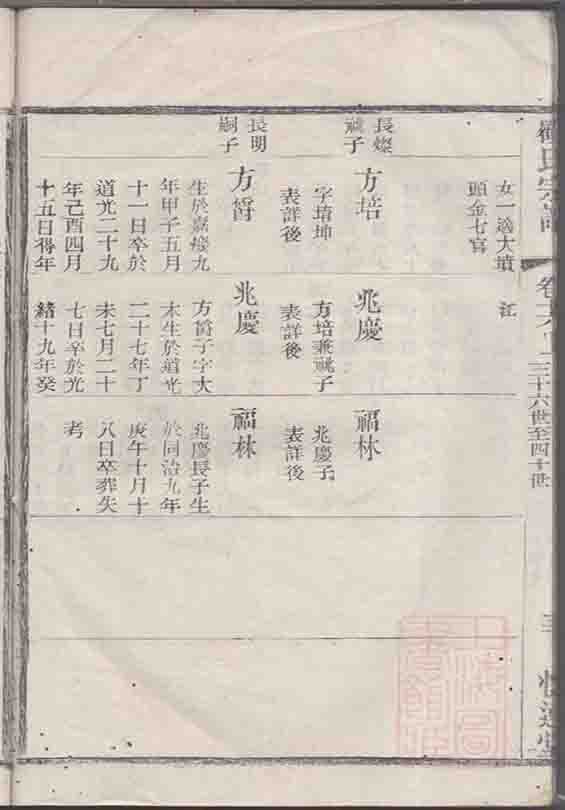 卷
三十六世至四十世
女一適大墳
頭金七官
江
長燦
祧子
方培
字堉坤
表詳後
兆慶
方培兼祧子
表詳後
福林
兆慶子
表詳後
長明
嗣子
方爵
生於嘉慶九
年甲子五月
十一日卒於
道光二十九
年己酉四月
十五日得年
兆慶
方爵子字大
木生於道光
二十七年丁
未七月二十
七日卒於光
緒十九年癸
福林
兆慶長子生
於同治九年
庚午十月十
八日卒葬失
考